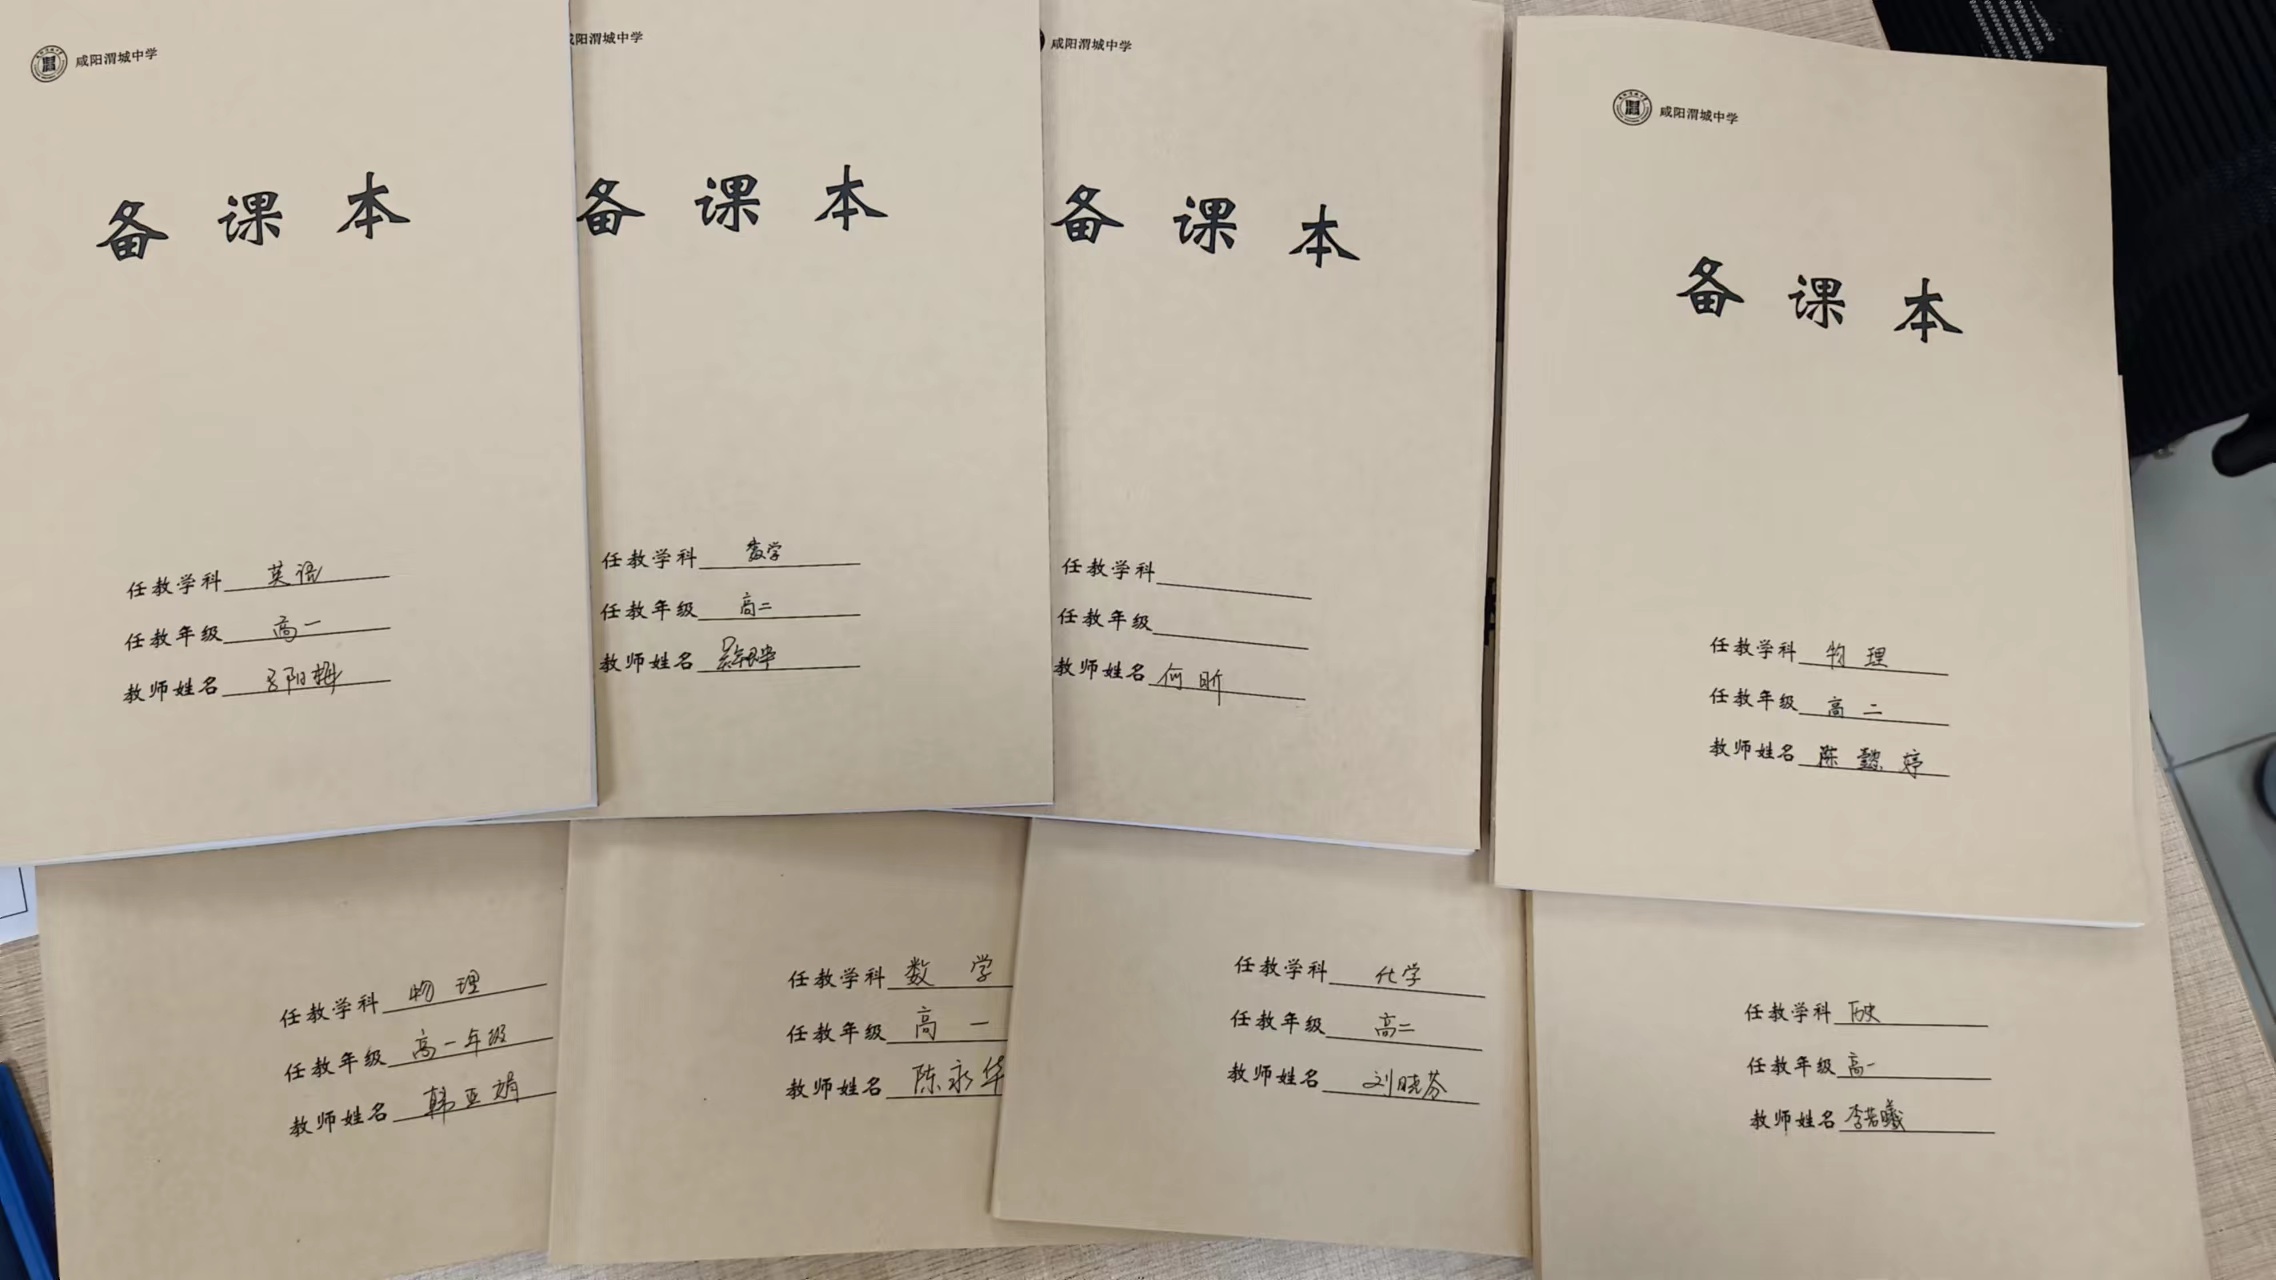 咸阳渭城中学
备课本
任教学科 英语
任教年级 高一
教师姓名
咸阳渭城中学
备课本
任教学科 数学
任教年级 高二
教师姓名
咸阳渭城中学
备课本
任教学科
任教年级
教师姓名 何昕
咸阳渭城中学
备课本
任教学科 物理
任教年级 高二
教师姓名 陈懿婷
任教学科 物理
任教年级 高一年级
教师姓名 韩亚娟
任教学科 数学
任教年级 高一
教师姓名 陈永华
任教学科 化学
任教年级 高二
教师姓名 刘晓芬
任教学科 历史
任教年级 高一
教师姓名 李若曦